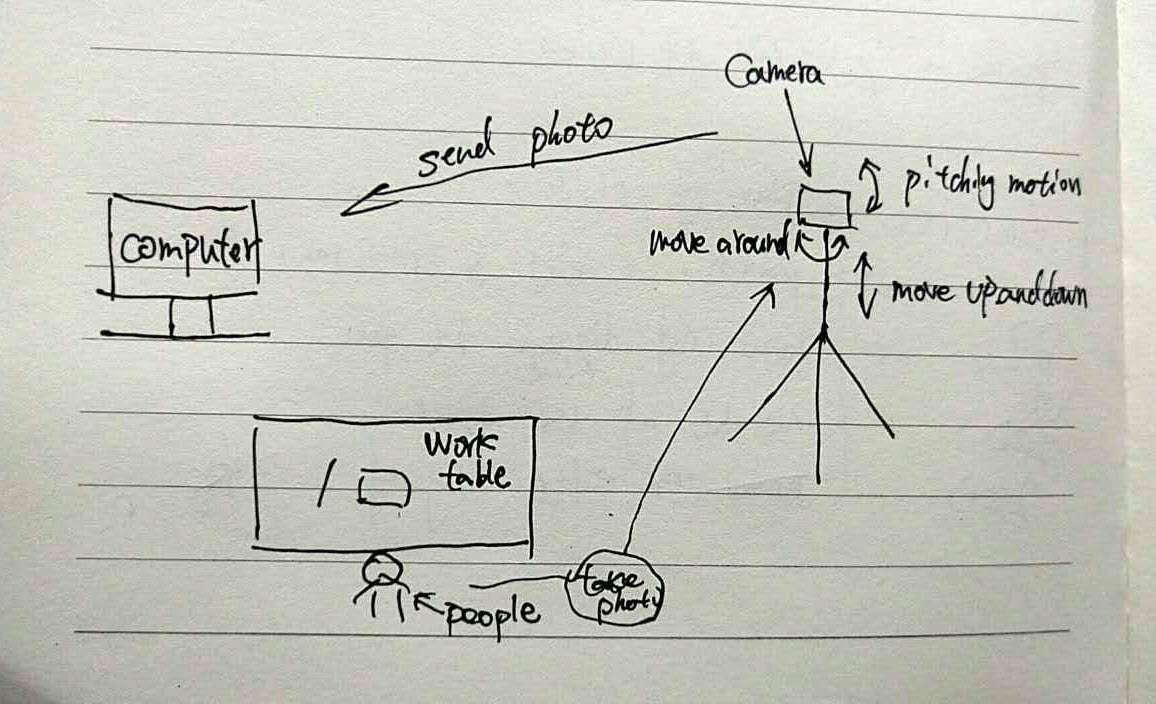 Camera
send photo
pitchily motion
computer
move around
move up and down
work
table
take
photo
people